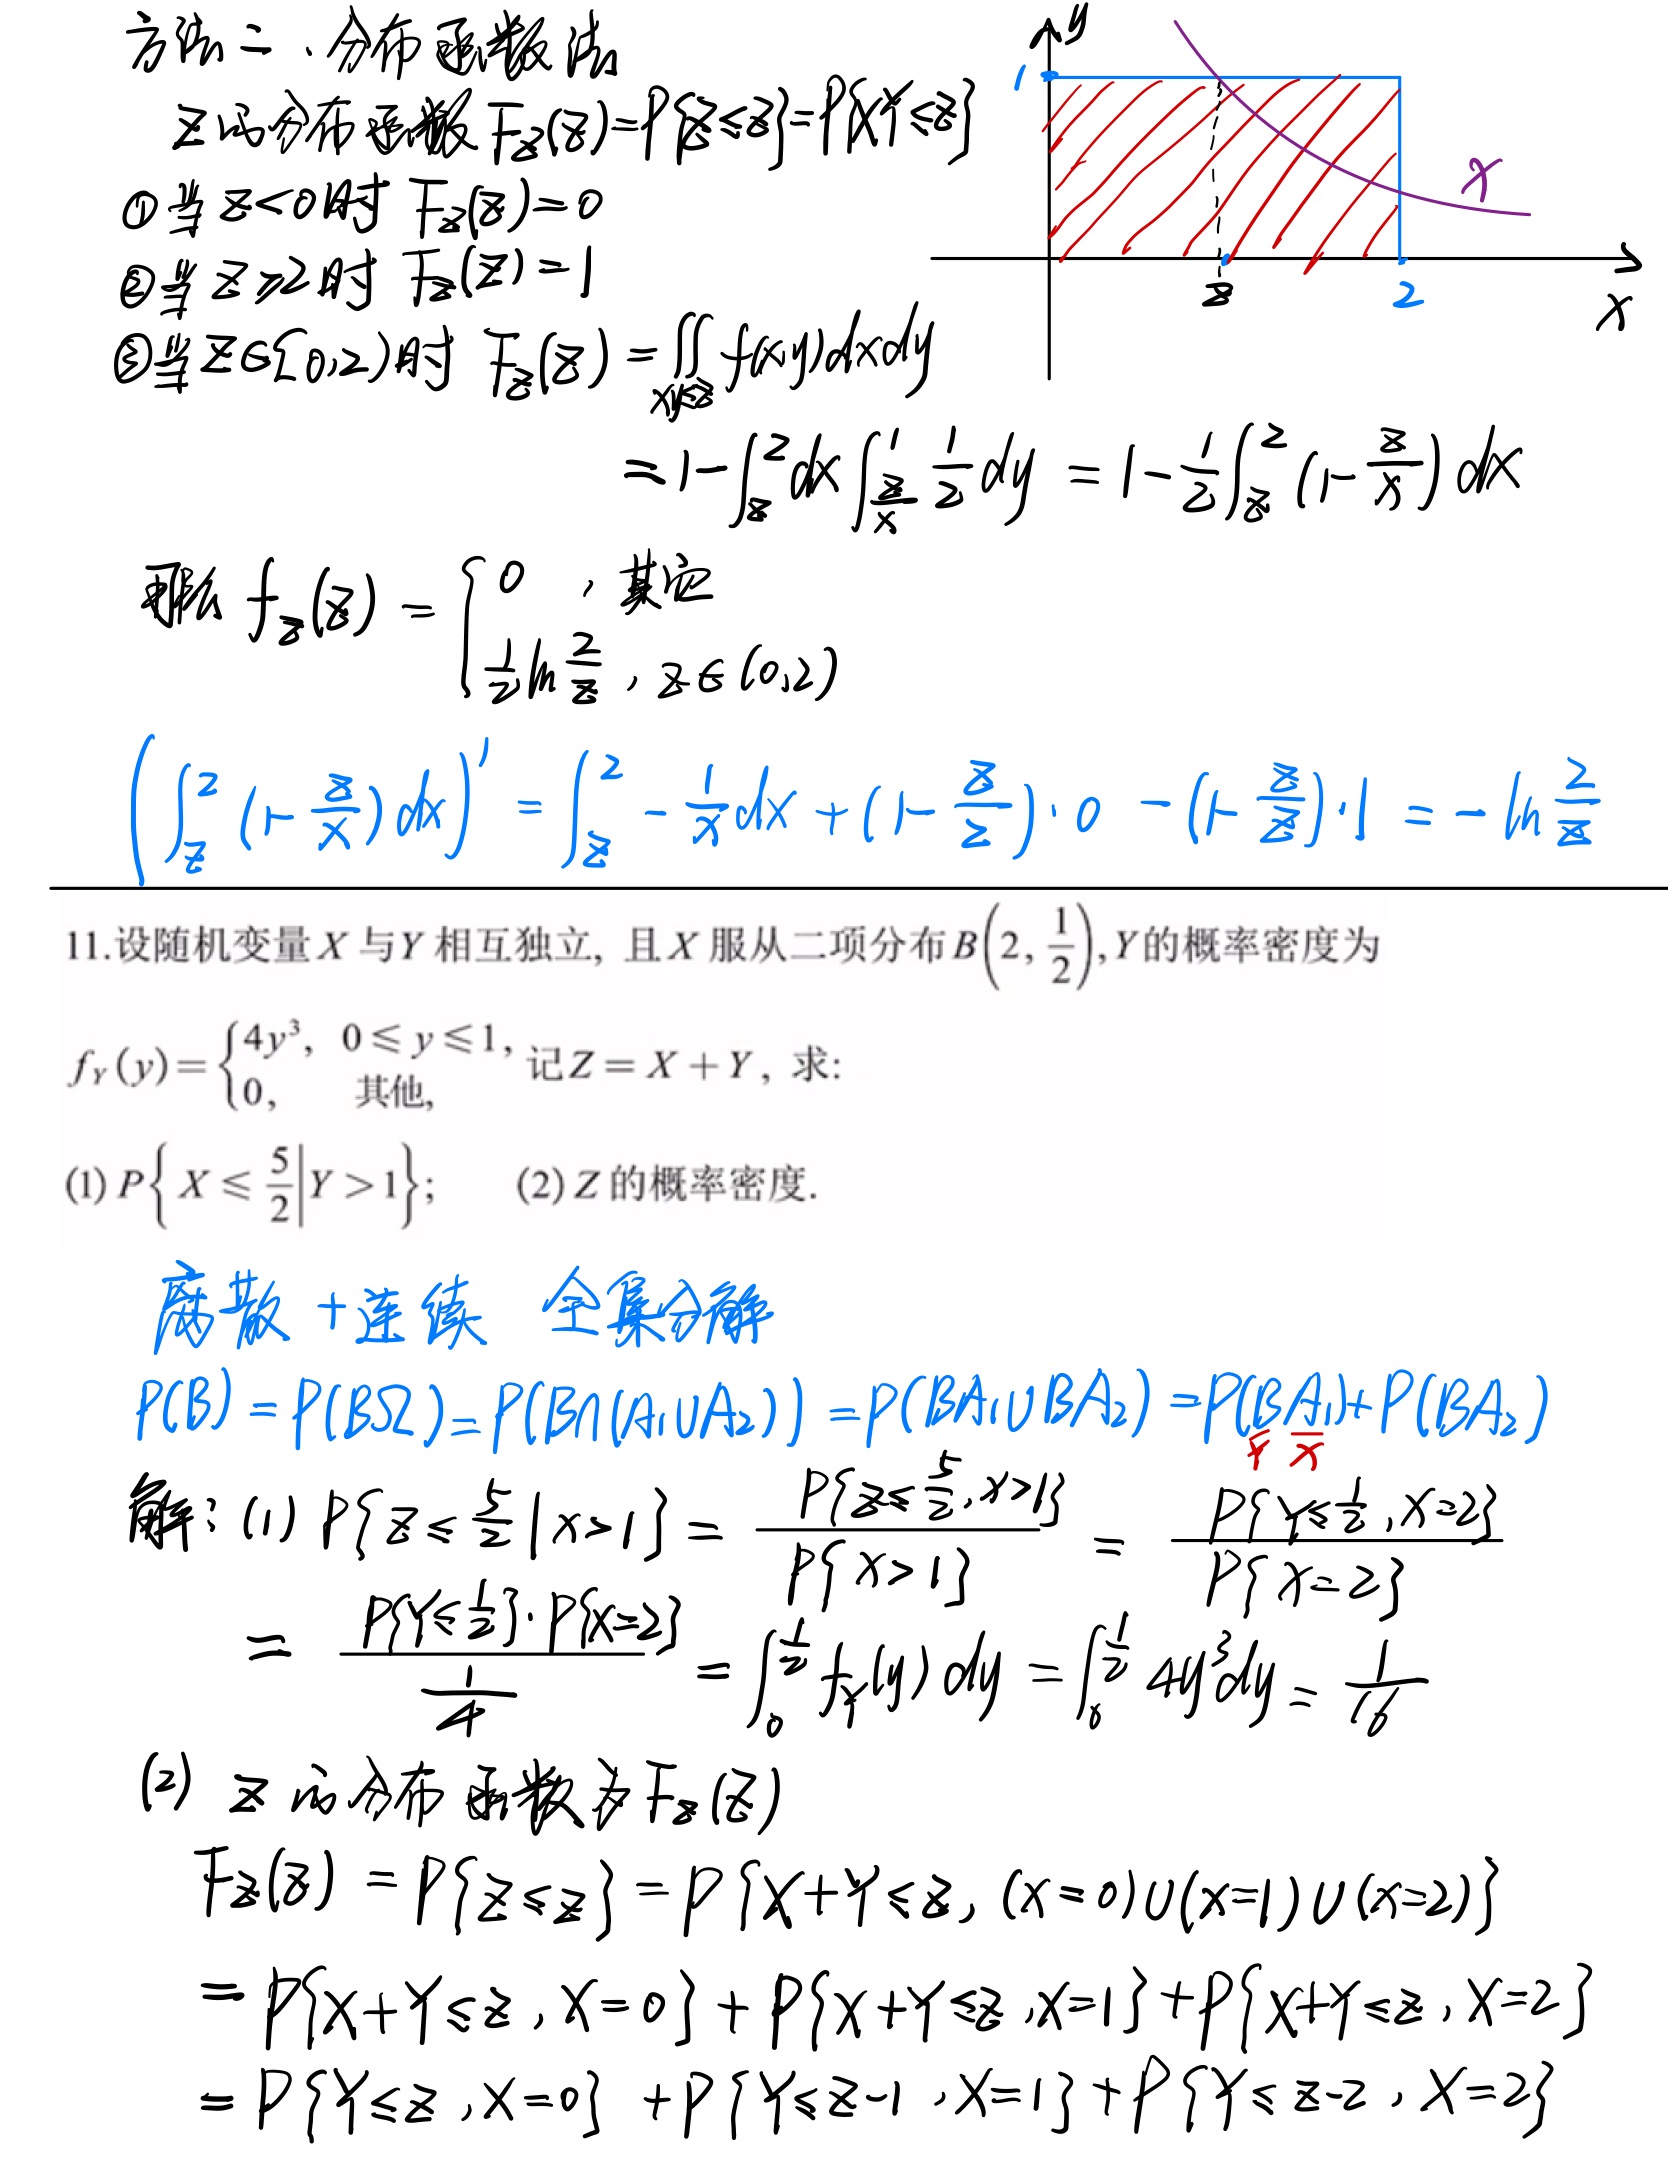 方法二、分布函数法
Z的分布函数 F_Z(z)=P{Z≤z}=P{XY≤z}
①当 z<0时 F_Z(z)=0
②当 z≥2时 F_Z(z)=1
③当 z∈[0,2)时 F_Z(z)=∬_{xy≤z} f(x,y)dxdy
=1-∫_z^2 dx∫_{z/x}^1 1/2 dy = 1-1/2∫_z^2 (1-z/x) dx
y
1
x
z
2
x
那么 f_Z(z) = { 0 , 其它
1/2 ln 2/z , z∈(0,2)
(∫_z^2 (1-z/x) dx)' = ∫_z^2 -1/x dx + (1-z/2)·0 - (1-z/z)·1 = -ln 2/z
11.设随机变量X与Y相互独立, 且X服从二项分布B(2, 1/2), Y的概率密度为
f_Y(y)= { 4y³, 0≤y≤1,
0, 其他, 记Z=X+Y, 求:
(1) P{X≤5/2|Y>1}; (2) Z的概率密度.
离散+连续 全集分解
P(B)=P(BΩ)=P(B∩(A₁∪A₂))=P(BA₁∪BA₂)=P(BA₁)+P(BA₂)
Y X
解:(1) P{Z≤5/2|X>1} = P{Z≤5/2,X>1}/P{X>1} = P{Y≤1/2,X=2}/P{X=2}
= P{Y≤1/2}·P{X=2}/(1/4) = ∫_0^{1/2} f_Y(y)dy = ∫_0^{1/2} 4y³dy = 1/16
(2) Z的分布函数为F_Z(z)
F_Z(z) = P{Z≤z} = P{X+Y≤z, (X=0)∪(X=1)∪(X=2)}
= P{X+Y≤z, X=0} + P{X+Y≤z, X=1} + P{X+Y≤z, X=2}
= P{Y≤z, X=0} + P{Y≤z-1, X=1} + P{Y≤z-2, X=2}